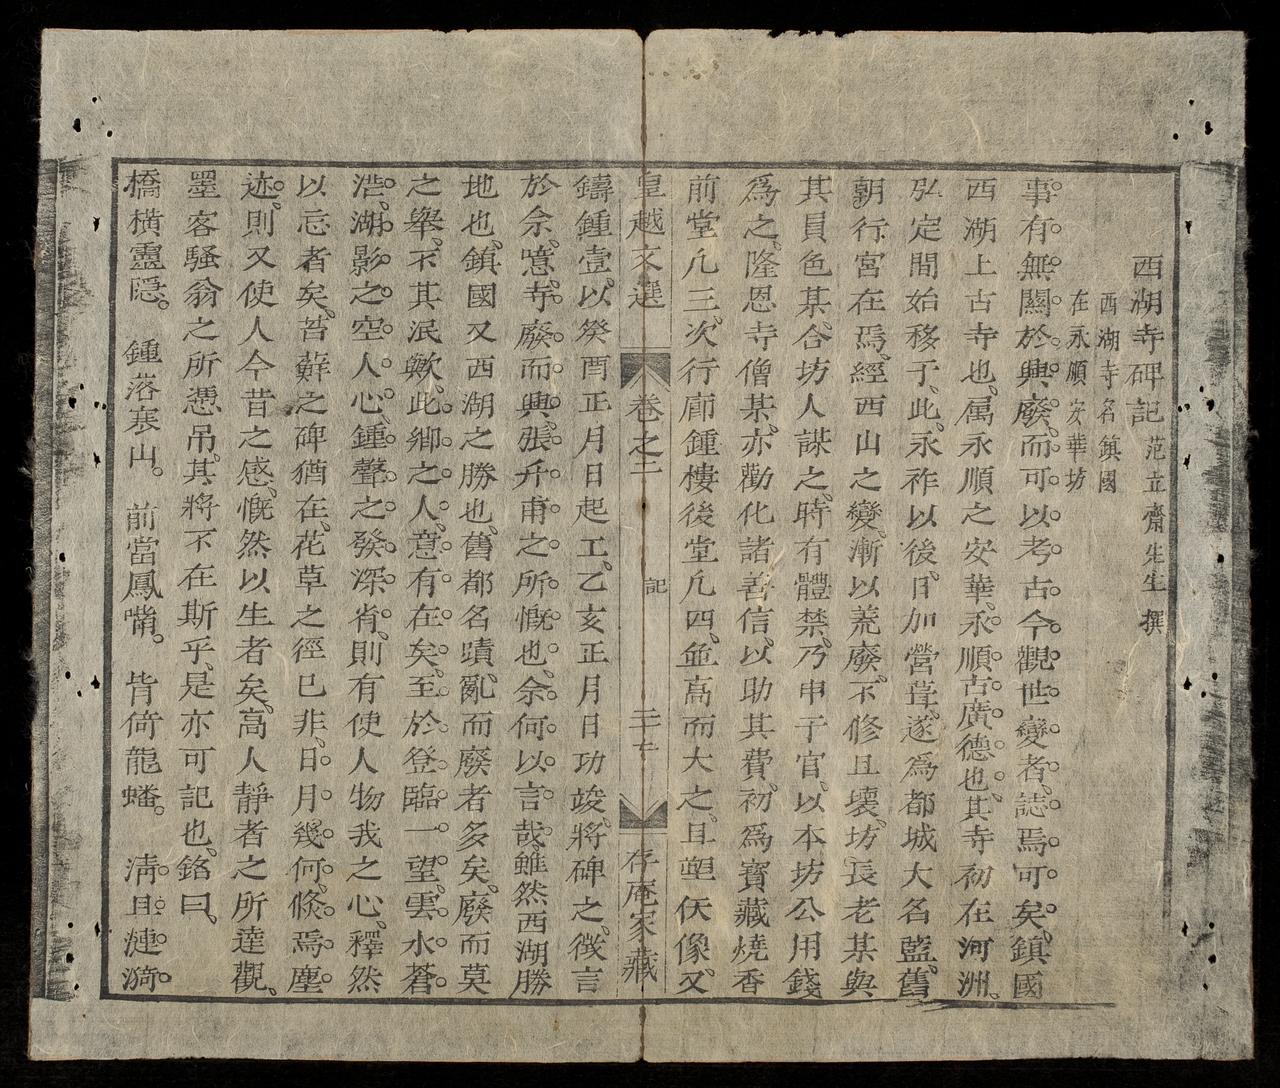 西湖寺碑記 范立齋先生 撰
西湖寺名鎮國
在永順安華坊
事有無關於興廢而可以考古今觀世變者誌焉可矣鎮國
西湖上古寺也属永順之安華永順古廣德也其寺初在河洲
弘定間始移于此永祚以後日加營葺遂爲都城大名藍舊
朝行宮在焉經西山之變漸以荒廢不修且壞坊長老某與
其員色某合坊人謀之時有體禁乃申于官以本坊公用錢
爲之隆恩寺僧某亦勸化諸善信以助其費初爲寳藏燒香
前堂凡三次行廊鍾樓後堂凡四並高而大之且塑佛像又
皇越文選 卷之二 記 二十七 存庵家藏
鑄鍾壹以癸酉正月日起工乙亥正月日功竣將碑之徵言
於余噫寺廢而興張升甫之所慨也余何以言哉雖然西湖勝
地也鎮國又西湖之勝也舊都名蹟亂而廢者多矣廢而莫
之舉不其泯歟此鄉之人意有在矣至於登臨一望雲水蒼
浩湖影之空人心鍾聲之發深省則有使人物我之心釋然
以忘者矣苔蘚之碑猶在花草之徑已非日月幾何倏焉塵
迹則又使人今昔之感慨然以生者矣高人靜者之所達觀
墨客騷翁之所憑吊其將不在斯乎是亦可記也銘曰
橋橫靈隱 鍾落寒山 前當鳳嘴 背倚龍蟠 清且漣漪